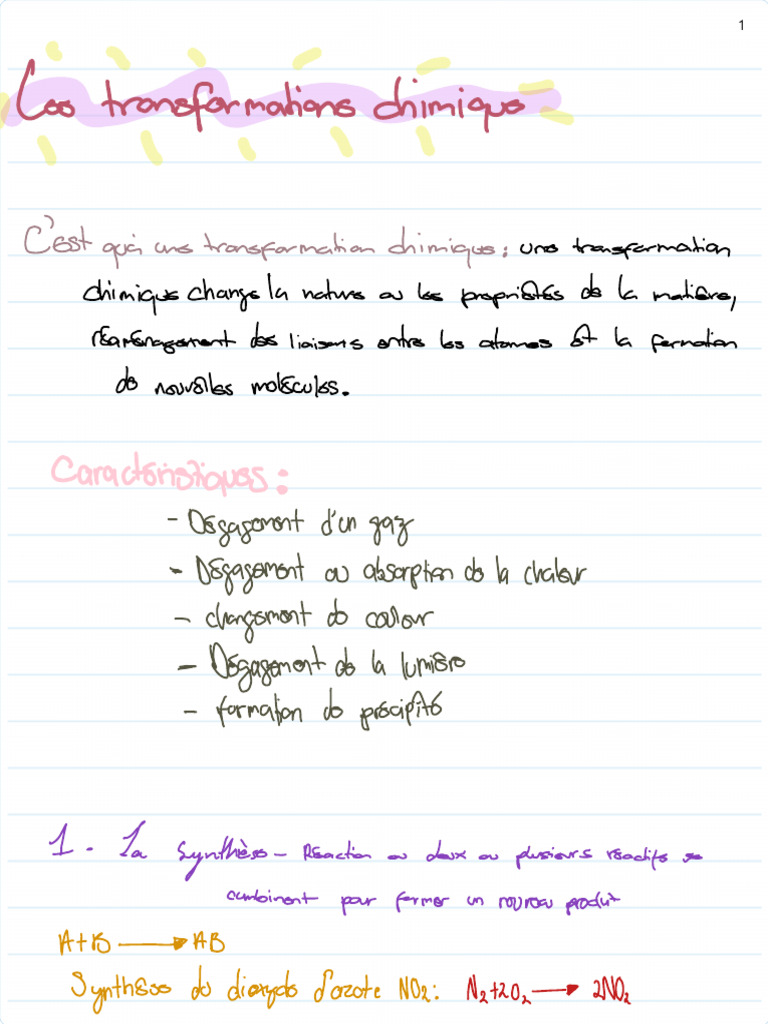 1
Les transformations chimique
C'est quoi une transformation chimique: une transformation
chimique change la nature ou les propriétés de la matière,
réaménagement des liaisons entre les atomes et la formation
de nouvelles molécules.
Caractéristiques:
- Dégagement d'un gaz
- Dégagement ou absorption de la chaleur
- changement de couleur
- Dégagement de la lumière
- formation de précipité
1. La synthèse - Réaction ou deux ou plusieurs réactifs se
combinent pour former un nouveau produit
A+B → AB
Synthèse du dioxyde d'azote NO₂: N₂+2O₂ → 2NO₂